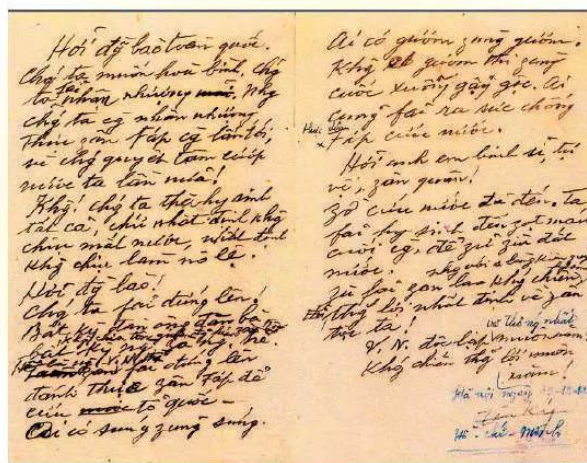 Hỡi đồng bào toàn quốc.
Chúng ta muốn hoà bình, chúng
ta fải nhân nhượng. Nhưng
chúng ta càng nhân nhượng
thực zân Fáp càng lấn tới,
vì chúng quyết tâm cướp
nước ta lần nữa!
Không! chúng ta thà hy sinh
tất cả, chứ nhất định không
chịu mất nước, nhất định
không chịu làm nô lệ.
Hỡi đồng bào!
Chúng ta fải đứng lên!
Bất kỳ đàn ông, đàn bà
bất kỳ
fải đứng lên
đánh thực zân Fáp để
cứu tổ quốc –
Ai có súng zùng súng.
Ai có gươm zùng gươm.
Không có gươm thì zùng
cuốc xuổng gậy gộc. Ai
cũng fải ra sức chống
thực zân Fáp cứu nước.
Hỡi anh em binh sĩ, tự
vệ, zân quân!
Zờ cứu nước đã đến. Ta
fải hy sinh đến zọt máu
cuối cùng, để zữ zìn đất
nước.
Zù fải zan lao kháng chiến,
thắng lợi nhất định về zân
tộc ta!
và thống nhất
V.N. độc lập muôn năm!
Kháng chiến thắng lợi muôn
năm!
Hà nội ngày 19-12-46
Hồ-chí-Minh